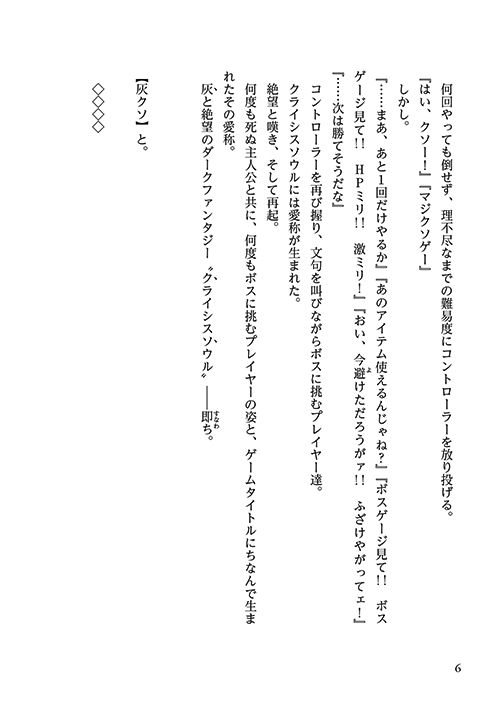 何回やっても倒せず、理不尽なまでの難易度にコントローラーを放り投げる。
『はい、クソー！』『マジクソゲー』
しかし。
『……まあ、あと１回だけやるか』『あのアイテム使えるんじゃね？』『ボスゲージ見て!!　ボス
ゲージ見て!!　HPミリ!!　激ミリ！』『おい、今避けただろうがァ!!　ふざけやがってェ！』
『……次は勝てそうだな』
コントローラーを再び握り、文句を叫びながらボスに挑むプレイヤー達。
クライシスソウルには愛称が生まれた。
絶望と嘆き、そして再起。
何度も死ぬ主人公と共に、何度もボスに挑むプレイヤーの姿と、ゲームタイトルにちなんで生ま
れたその愛称。
灰と絶望のダークファンタジー〝クライシスソウル〟――即ち。
【灰クソ】と。
◇◇◇◇
6